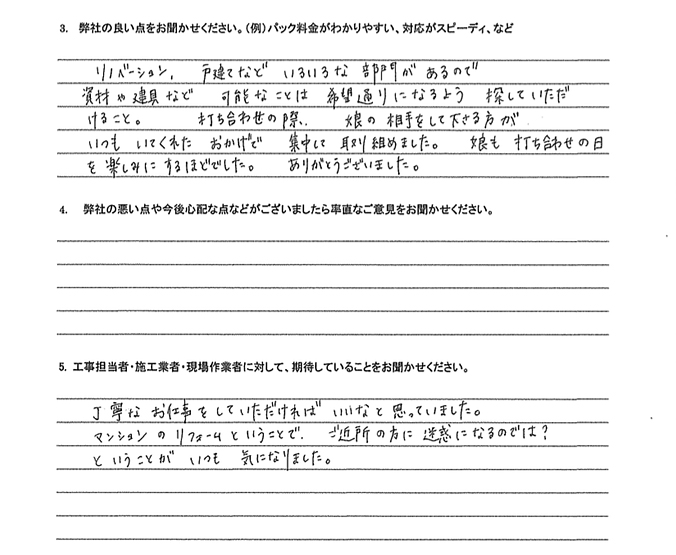 3. 弊社の良い点をお聞かせください。（例）パック料金がわかりやすい、対応がスピーディ、など
リノベーション、戸建てなど いろいろな 部門が あるので
資材や建具など 可能なことは 希望通りになるよう 探していただ
けること。 打ち合わせの際、 娘の相手をして下さる方が
いつも いてくれた おかげで 集中して 取り組めました。 娘も 打ち合わせの日
を 楽しみに するほどでした。 ありがとうございました。
4. 弊社の悪い点や今後心配な点などがございましたら率直なご意見をお聞かせください。
5. 工事担当者・施工業者・現場作業者に対して、期待していることをお聞かせください。
丁寧な お仕事を していただければ いいなと 思っていました。
マンションの リフォームということで、 ご近所の方に 迷惑になるのでは？
と いうことが いつも 気になりました。